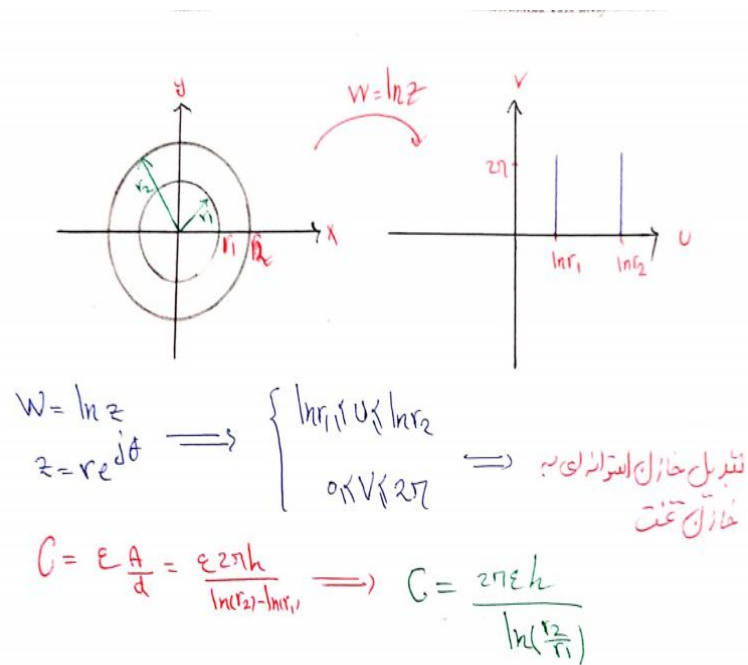 y
V
W = ln z
r₂
r₁
2π
x
r₁
r₂
U
ln r₁
ln r₂
W = ln z
z = re^{jθ} ⟹ { ln r₁ ≤ U ≤ ln r₂
0 ≤ V ≤ 2π ⟹ تبدیل خازن استوانه ای به
خازن تخت
C = ε A/d = ε2πh / ln(r₂) - ln(r₁) ⟹ C = 2πεh / ln(r₂/r₁)